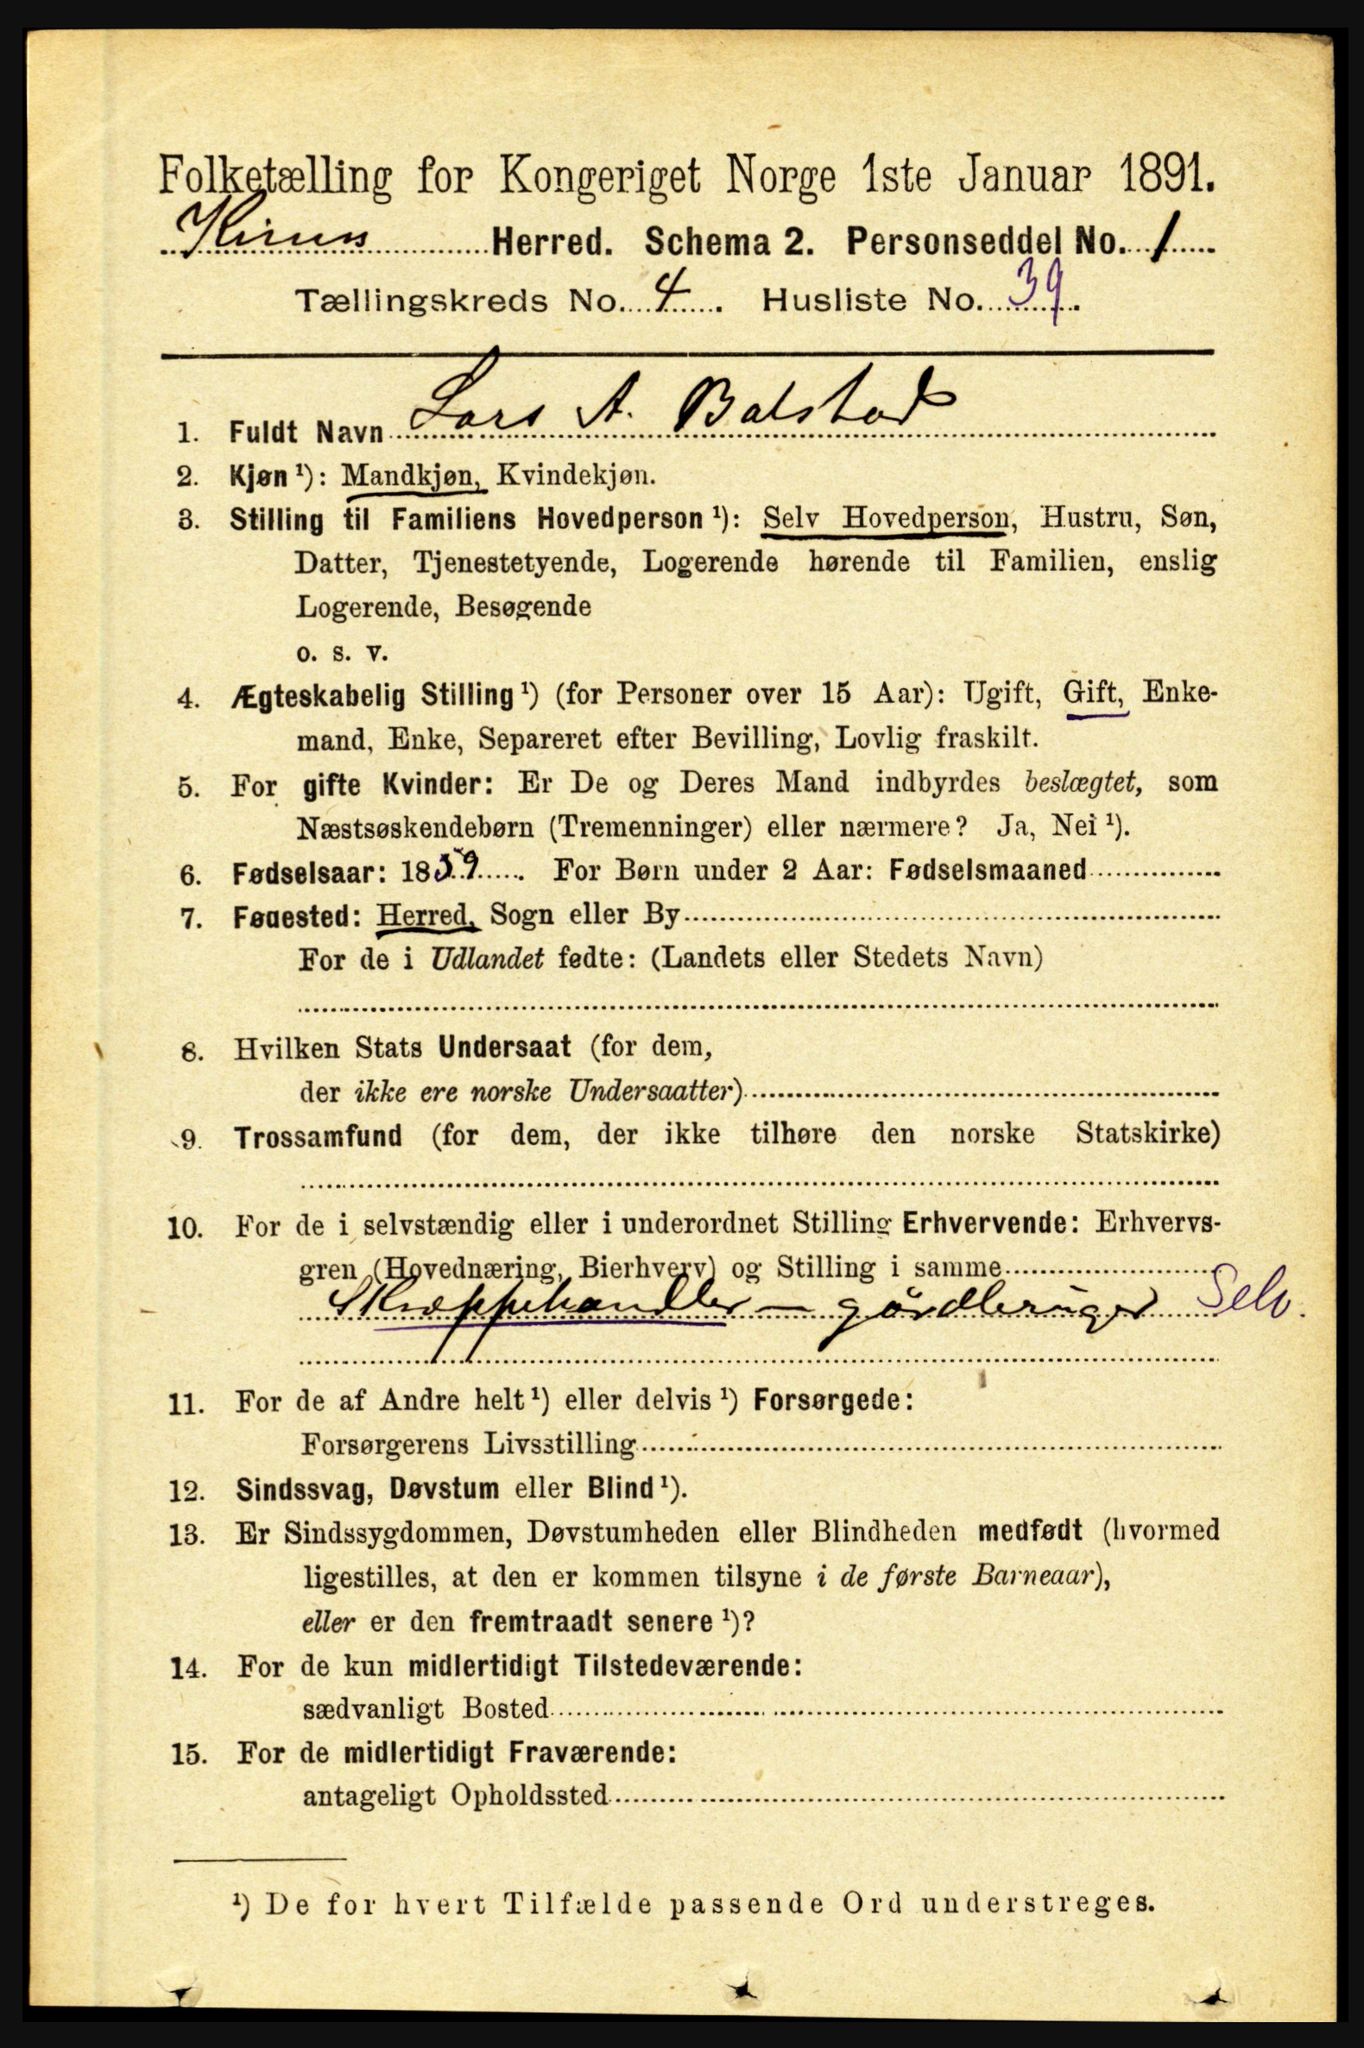 Folketælling for Kongeriget Norge 1ste Januar 1891.
Kinns Herred. Schema 2. Personseddel No. 1
Tællingskreds No. 4. Husliste No. 39.
1. Fuldt Navn Lars A. Balstad
2. Kjøn ¹): Mandkjøn, Kvindekjøn.
3. Stilling til Familiens Hovedperson ¹): Selv Hovedperson, Hustru, Søn,
Datter, Tjenestetyende, Logerende hørende til Familien, enslig
Logerende, Besøgende
o. s. v.
4. Ægteskabelig Stilling ¹) (for Personer over 15 Aar): Ugift, Gift, Enke-
mand, Enke, Separeret efter Bevilling, Lovlig fraskilt.
5. For gifte Kvinder: Er De og Deres Mand indbyrdes beslægtet, som
Næstsøskendebørn (Tremenninger) eller nærmere? Ja, Nei ¹).
6. Fødselsaar: 1859. For Børn under 2 Aar: Fødselsmaaned
7. Fødested: Herred, Sogn eller By
For de i Udlandet fødte: (Landets eller Stedets Navn)
8. Hvilken Stats Undersaat (for dem,
der ikke ere norske Undersaatter)
9. Trossamfund (for dem, der ikke tilhøre den norske Statskirke)
10. For de i selvstændig eller i underordnet Stilling Erhvervende: Erhvervs-
gren (Hovednæring, Bierhverv) og Stilling i samme
Skræppehandler – gårdbruger Selv.
11. For de af Andre helt ¹) eller delvis ¹) Forsørgede:
Forsørgerens Livsstilling
12. Sindssvag, Døvstum eller Blind ¹).
13. Er Sindssygdommen, Døvstumheden eller Blindheden medfødt (hvormed
ligestilles, at den er kommen tilsyne i de første Barneaar),
eller er den fremtraadt senere ¹)?
14. For de kun midlertidigt Tilstedeværende:
sædvanligt Bosted
15. For de midlertidigt Fraværende:
antageligt Opholdssted
¹) De for hvert Tilfælde passende Ord understreges.